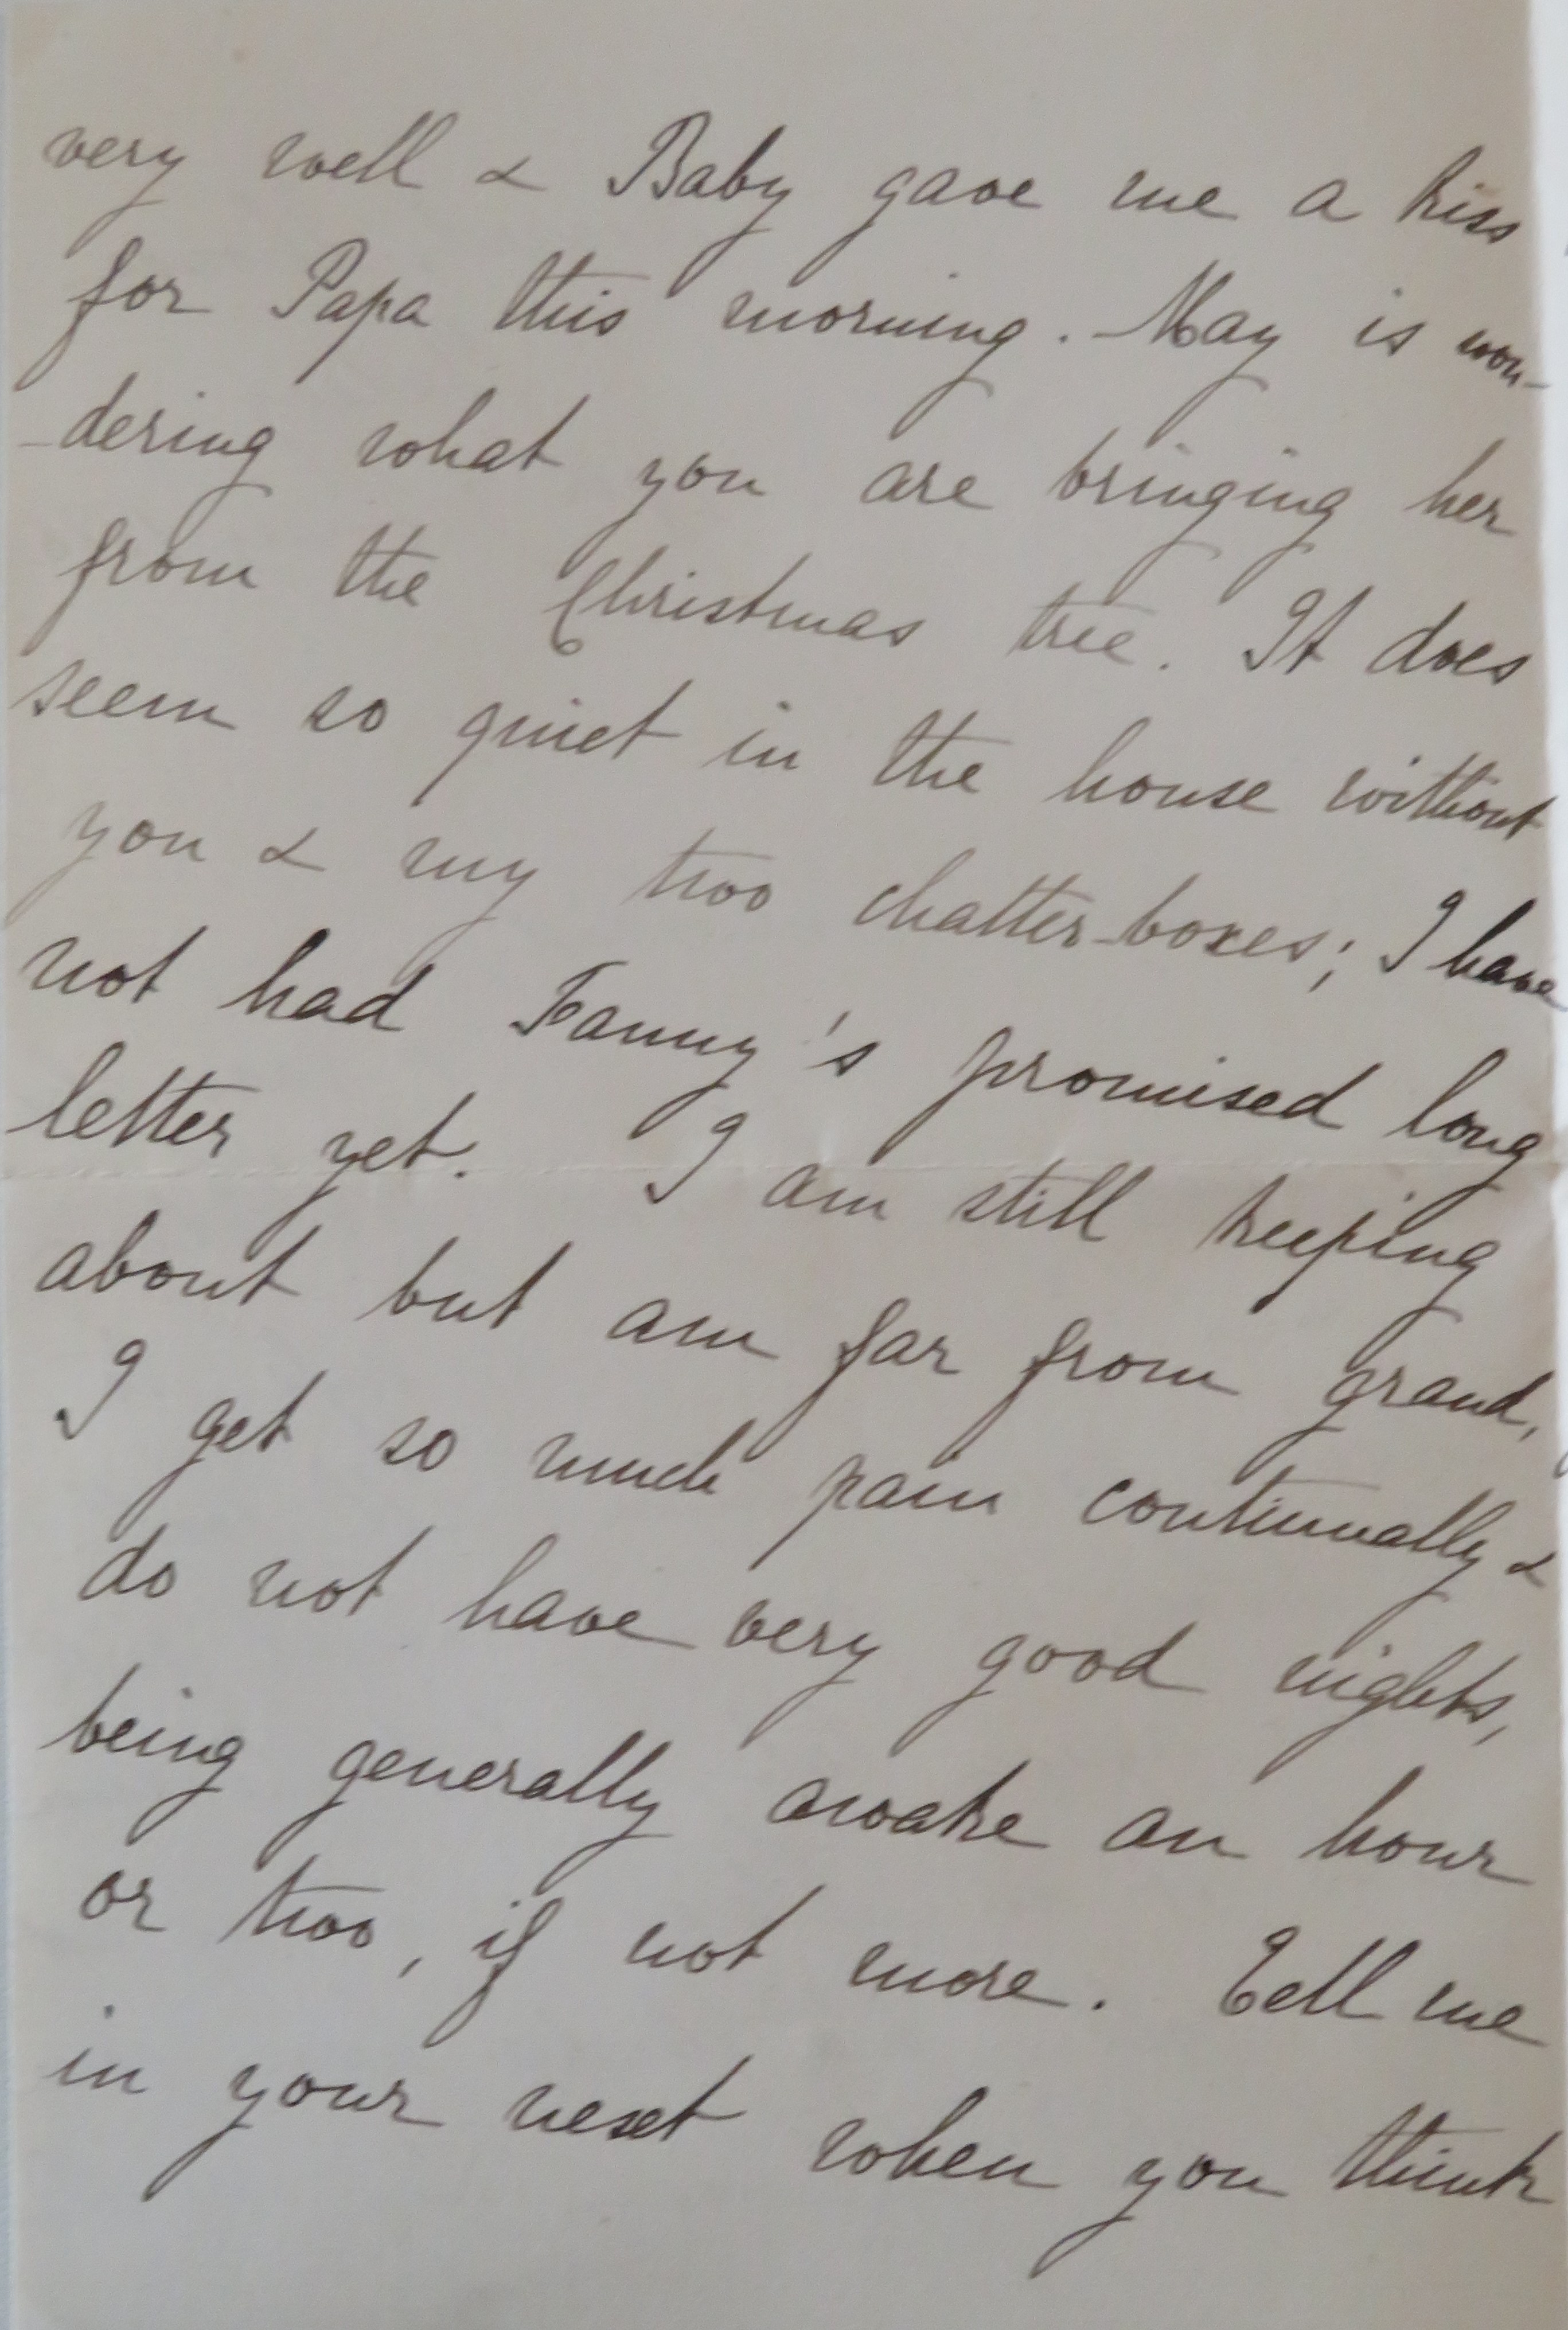 very well & Baby gave me a kiss
for Papa this morning. May is won-
-dering what you are bringing her
from the Christmas tree. It does
seem so quiet in the house without
you & my two chatter-boxes; I have
not had Fanny's promised long
letter yet. I am still keeping
about but am far from grand,
I get so much pain continually &
do not have very good nights,
being generally awake an hour
or two, if not more. Tell me
in your next when you think